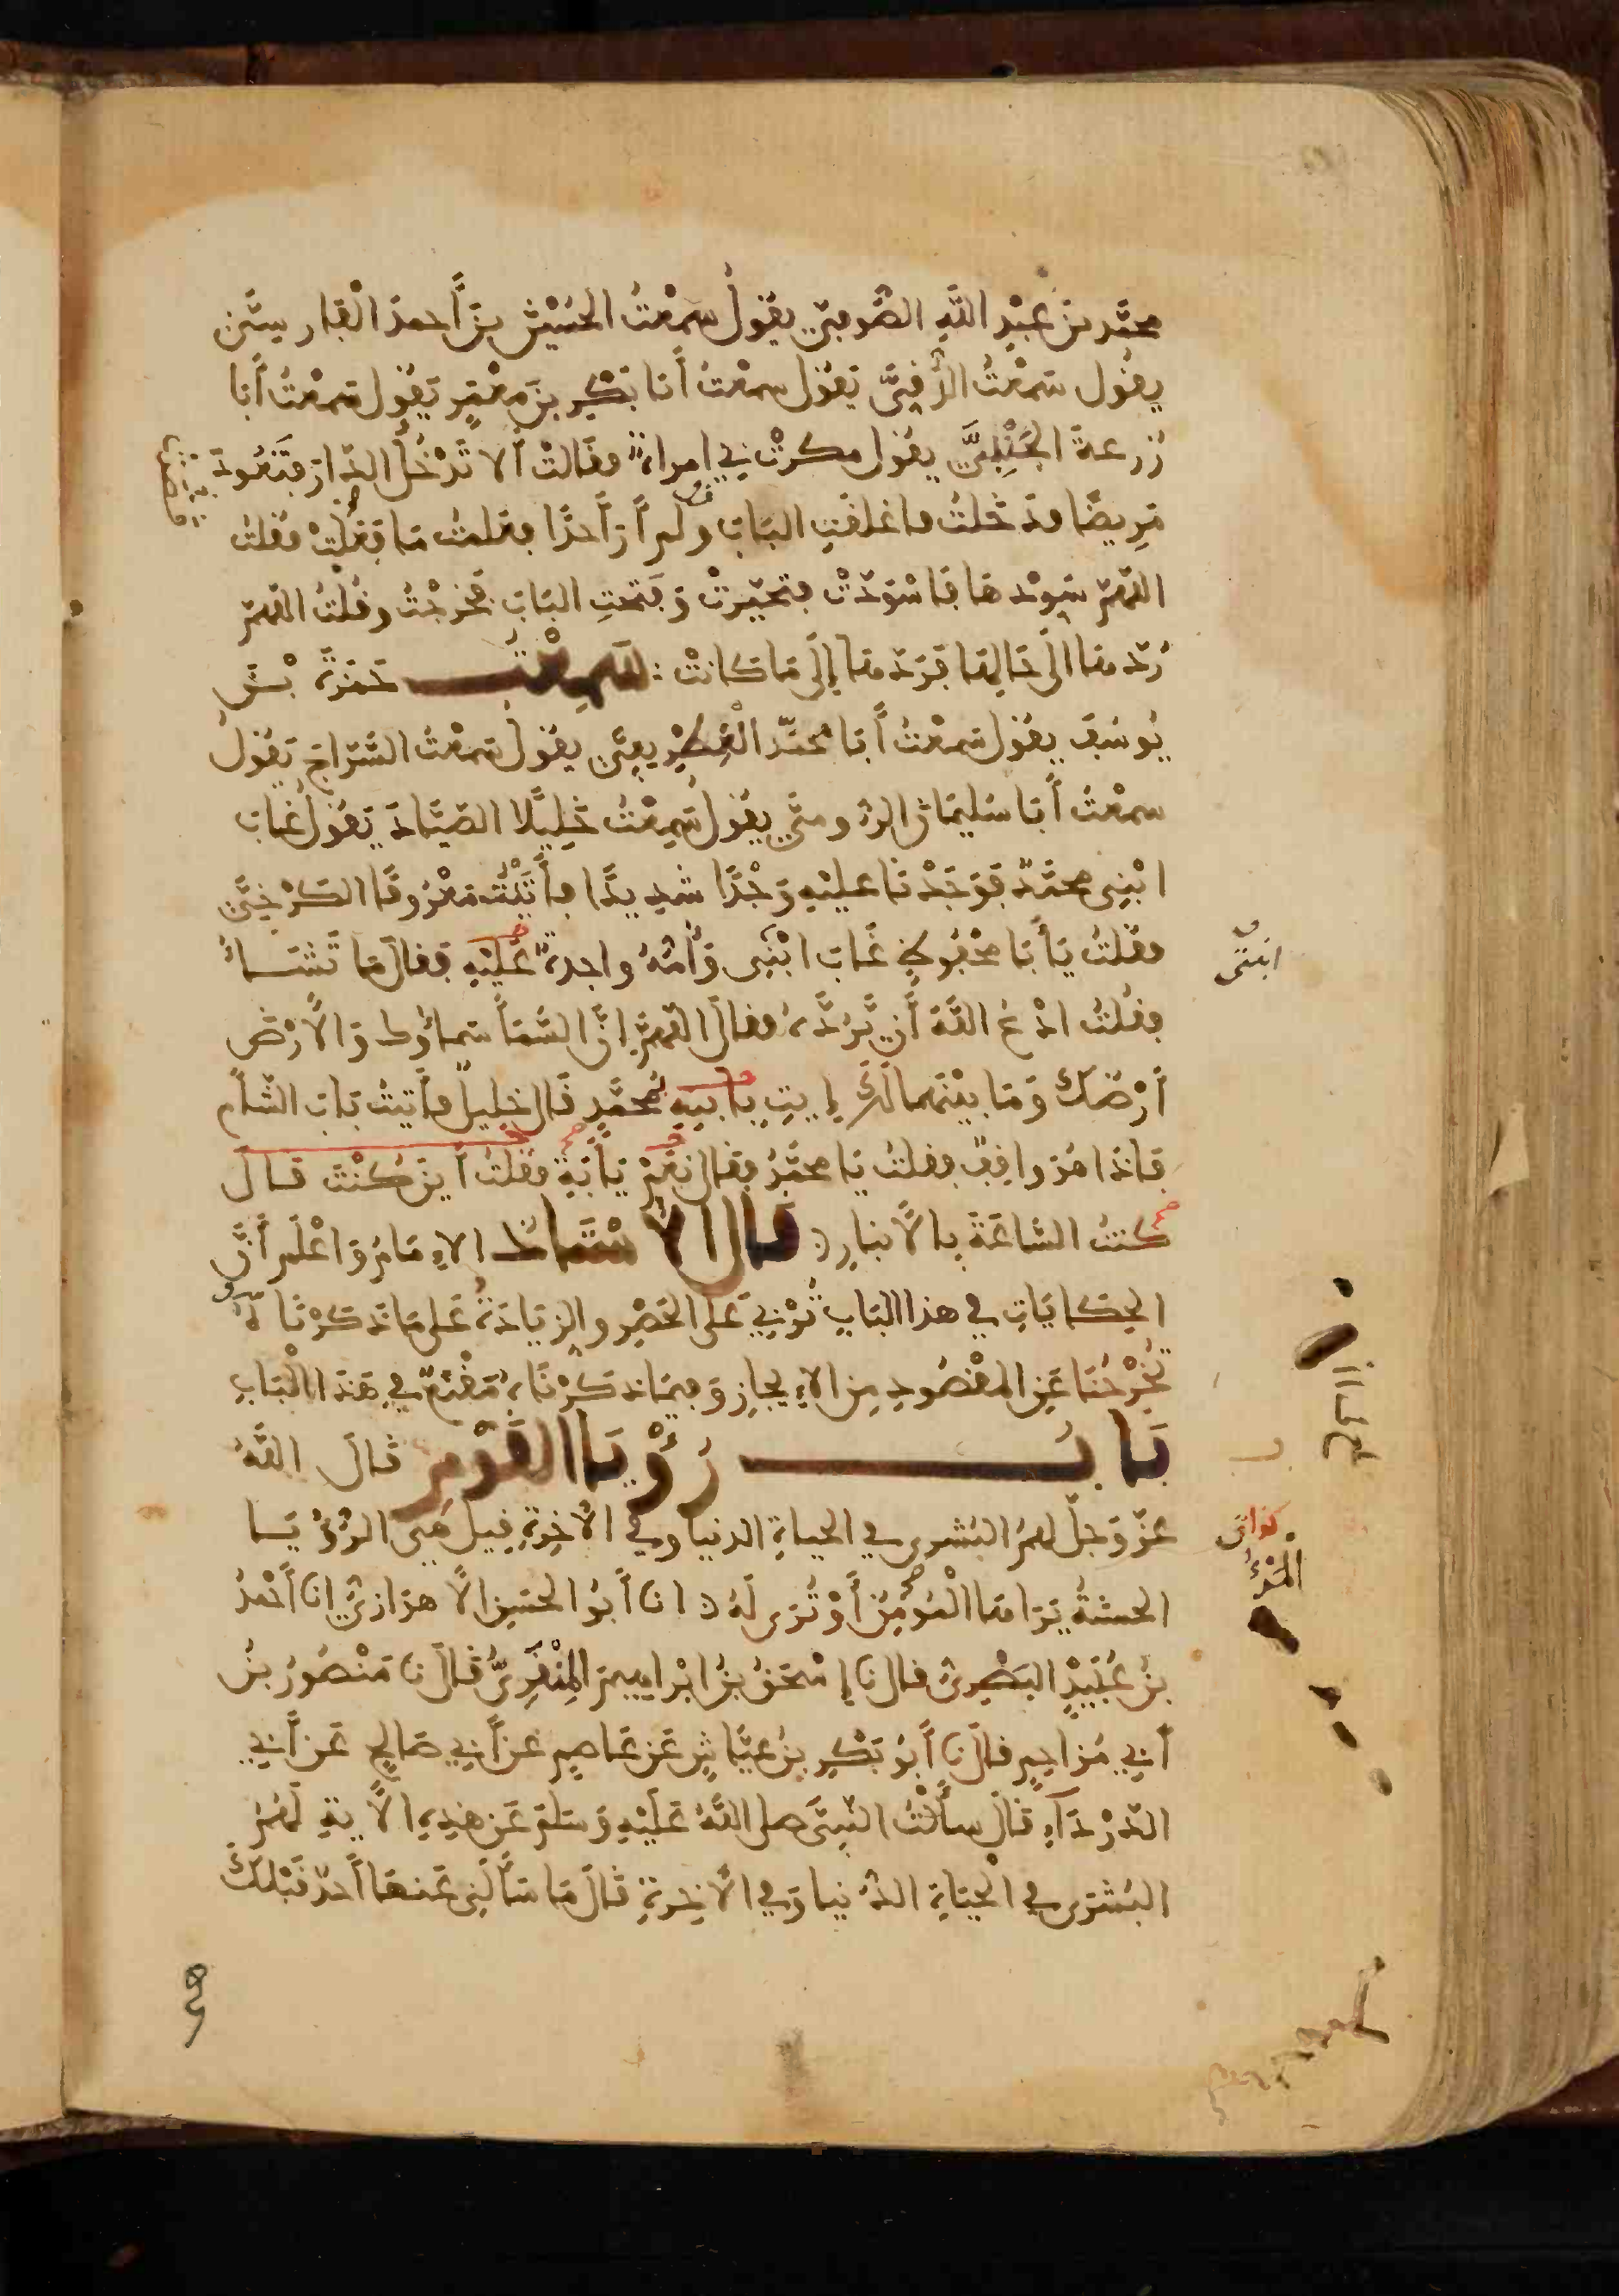 محمّد بن عبْدِ اللهِ الصُّوفيّ يقولُ سَمِعْتُ الحُسَيْنَ بنَ أَحمدَ الْفارسيَّ
يقُول سَمعْتُ الرُّقيَّ يَقول سمعْتُ أَبا بَكْرِ بنَ مَعْمَرٍ يَقول سَمعْتُ أَبا
زرعةَ الجَنْبِيَّ يقول مكرتْ بي امراةٌ فقَالتْ ألا تَدْخُلُ الدّارَ فتَعُودَ
مَريضًا فدَخلتُ فاغلقتِ البَابَ ولم أرَ أحدًا فعَلمتُ مَا فَعَلَتْ فقلتُ
اللّهمّ سَوِّدهَا فَاسْوَدّتْ فتحَيّرتْ وَفَتحتِ البَابَ فخَرجْتُ وقُلتُ اللّهمّ
رُدّهَا الَى حَالِهَا فَرَدّهَا إلَى مَا كَانَتْ : سَمِعْتُ حَمْزَةَ بْنَ
يُوسُفَ يقُول سَمعْتُ أَبَا محمّدٍ الْغِطْرِيفِيَّ يقُول سَمعْتُ السَّرّاجَ يَقُولُ
سمعْتُ أَبَا سُليمَانَ الرُّومِيَّ يقُولُ سَمِعْتُ خَلِيلًا الصَّيَّادَ يَقُول غَابَ
ابْنِي محمّدٌ فوَجَدْنَا عليْهِ وَجْدًا شديدًا فأَتَيْتُ مَعْرُوفًا الكَرْخِيَّ
فقلتُ يَأَبَا مَحْفُوظٍ غَابَ ابْنِي وَأُمُّهُ واجدةٌ عَلَيْهِ فقَالَ مَا تَشَاءُ
فقُلتُ ادْعُ اللهَ أَن يَّرُدَّهُ فقَالَ اللّهمَّ إنَّ السَّمَاءَ سَماؤُكَ وَالأَرْضَ
أَرْضُكَ وَمَا بيْنَهمَا لَكَ إيتِ بِمُحَمَّدٍ قَال خليلٌ فأَتيتُ بَابَ الشّأم
فَاذَا هُوَ واقِفٌ فقلتُ يَا محمَّدُ فقَال نَعَمْ يَأَبَةِ فقلتُ أَينَ كُنْتَ قَالَ
كنتُ السَّاعَةَ بِالأَنبارِ قَالَ الأُسْتَاذُ الإِمَامُ وَاعْلَم أَنَّ
الحِكَايَاتِ في هذا البَابِ تُرْبِي عَلى الحَصْرِ والزّيَادَةُ عَلى مَا ذَكرْنَاهُ
تُخْرِجُنَا عَنِ المقْصُودِ مِن الإِيجازِ وَفِيمَا ذَكرْنَاهُ مَقْنَعٌ في هَذَا الْبَابِ
بَابُ رُؤْيَا القَوْمِ قَالَ اللهُ
عزّ وَجلّ لهمُ البُشْرى في الحياةِ الدنيا وفي الآخِرةِ قيل هِيَ الرُّؤْيَا
الحسنةُ يَرَاهَا الْمُؤْمِنُ أَوْ تُرَى لَهُ انا أَبُو الحسَينِ الأَهوَازيُّ انا أَحْمَدُ
بنُ عُبَيْدٍ البَصْرِيُّ قال نا إسْحَقُ بنُ ابْراهِيمَ المِنْقَرِيُّ قَالَ نا مَنْصُورُ بنُ
أَبِي مُزَاحِمٍ قالَ نا أَبُو بَكْرِ بنُ عيَّاشٍ عَن عَاصِمٍ عن أَبِي صَالحٍ عَن أَبِي
الدّرْدَآءِ قَالَ سأَلْتُ النّبِيَّ صلى اللهُ عَلَيْهِ وَسَلمَ عَن هذِهِ الآيةِ لَهُمُ
البُشْرَى في الْحيَاةِ الدُّنيا وَفي الآخِرةِ قَالَ مَا سَأَلَنِي عَنهَا أَحدٌ قَبْلَكَ
ابنى
المَرْءُ